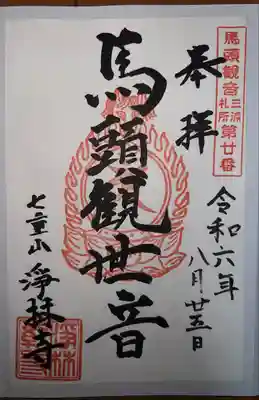 馬頭観音
三浦
札所
第廿番
奉拝
令和六年
八月廿五日
馬頭観世音
七重山
浄林寺